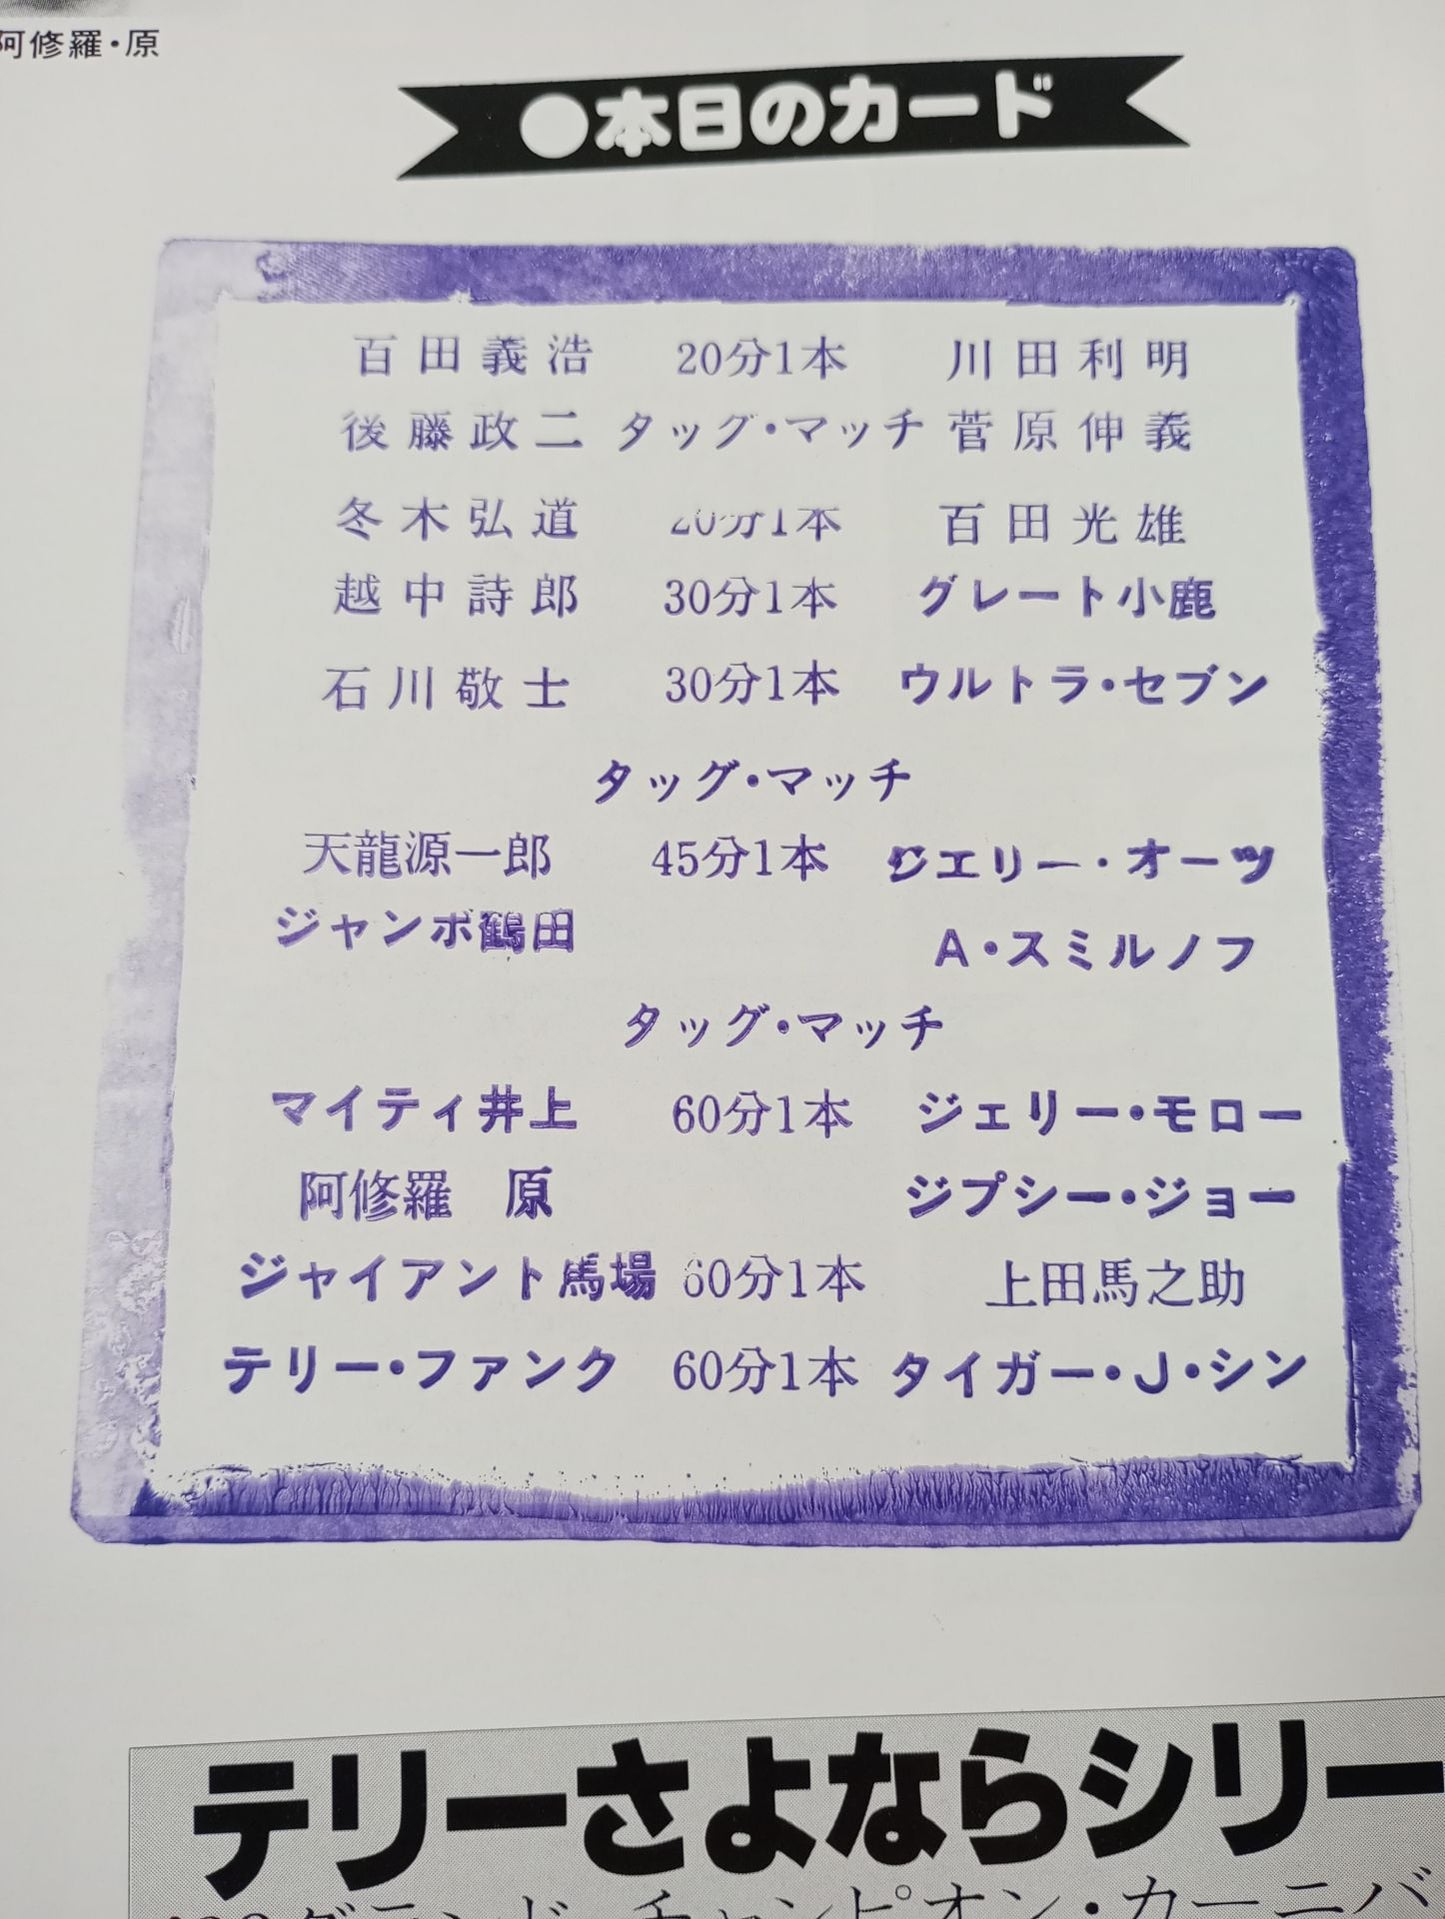 阿修羅・原
●本日のカード
百田義浩 20分1本 川田利明
後藤政二 タッグ・マッチ 菅原伸義
冬木弘道 20分1本 百田光雄
越中詩郎 30分1本 グレート小鹿
石川敬士 30分1本 ウルトラ・セブン
タッグ・マッチ
天龍源一郎 45分1本 ジェリー・オーツ
ジャンボ鶴田
A・スミルノフ
タッグ・マッチ
マイティ井上 60分1本 ジェリー・モロー
阿修羅 原 ジプシー・ジョー
ジャイアント馬場 60分1本 上田馬之助
テリー・ファンク 60分1本 タイガー・J・シン
テリーさよならシリー
グランド・チャンピオン・カーニバ